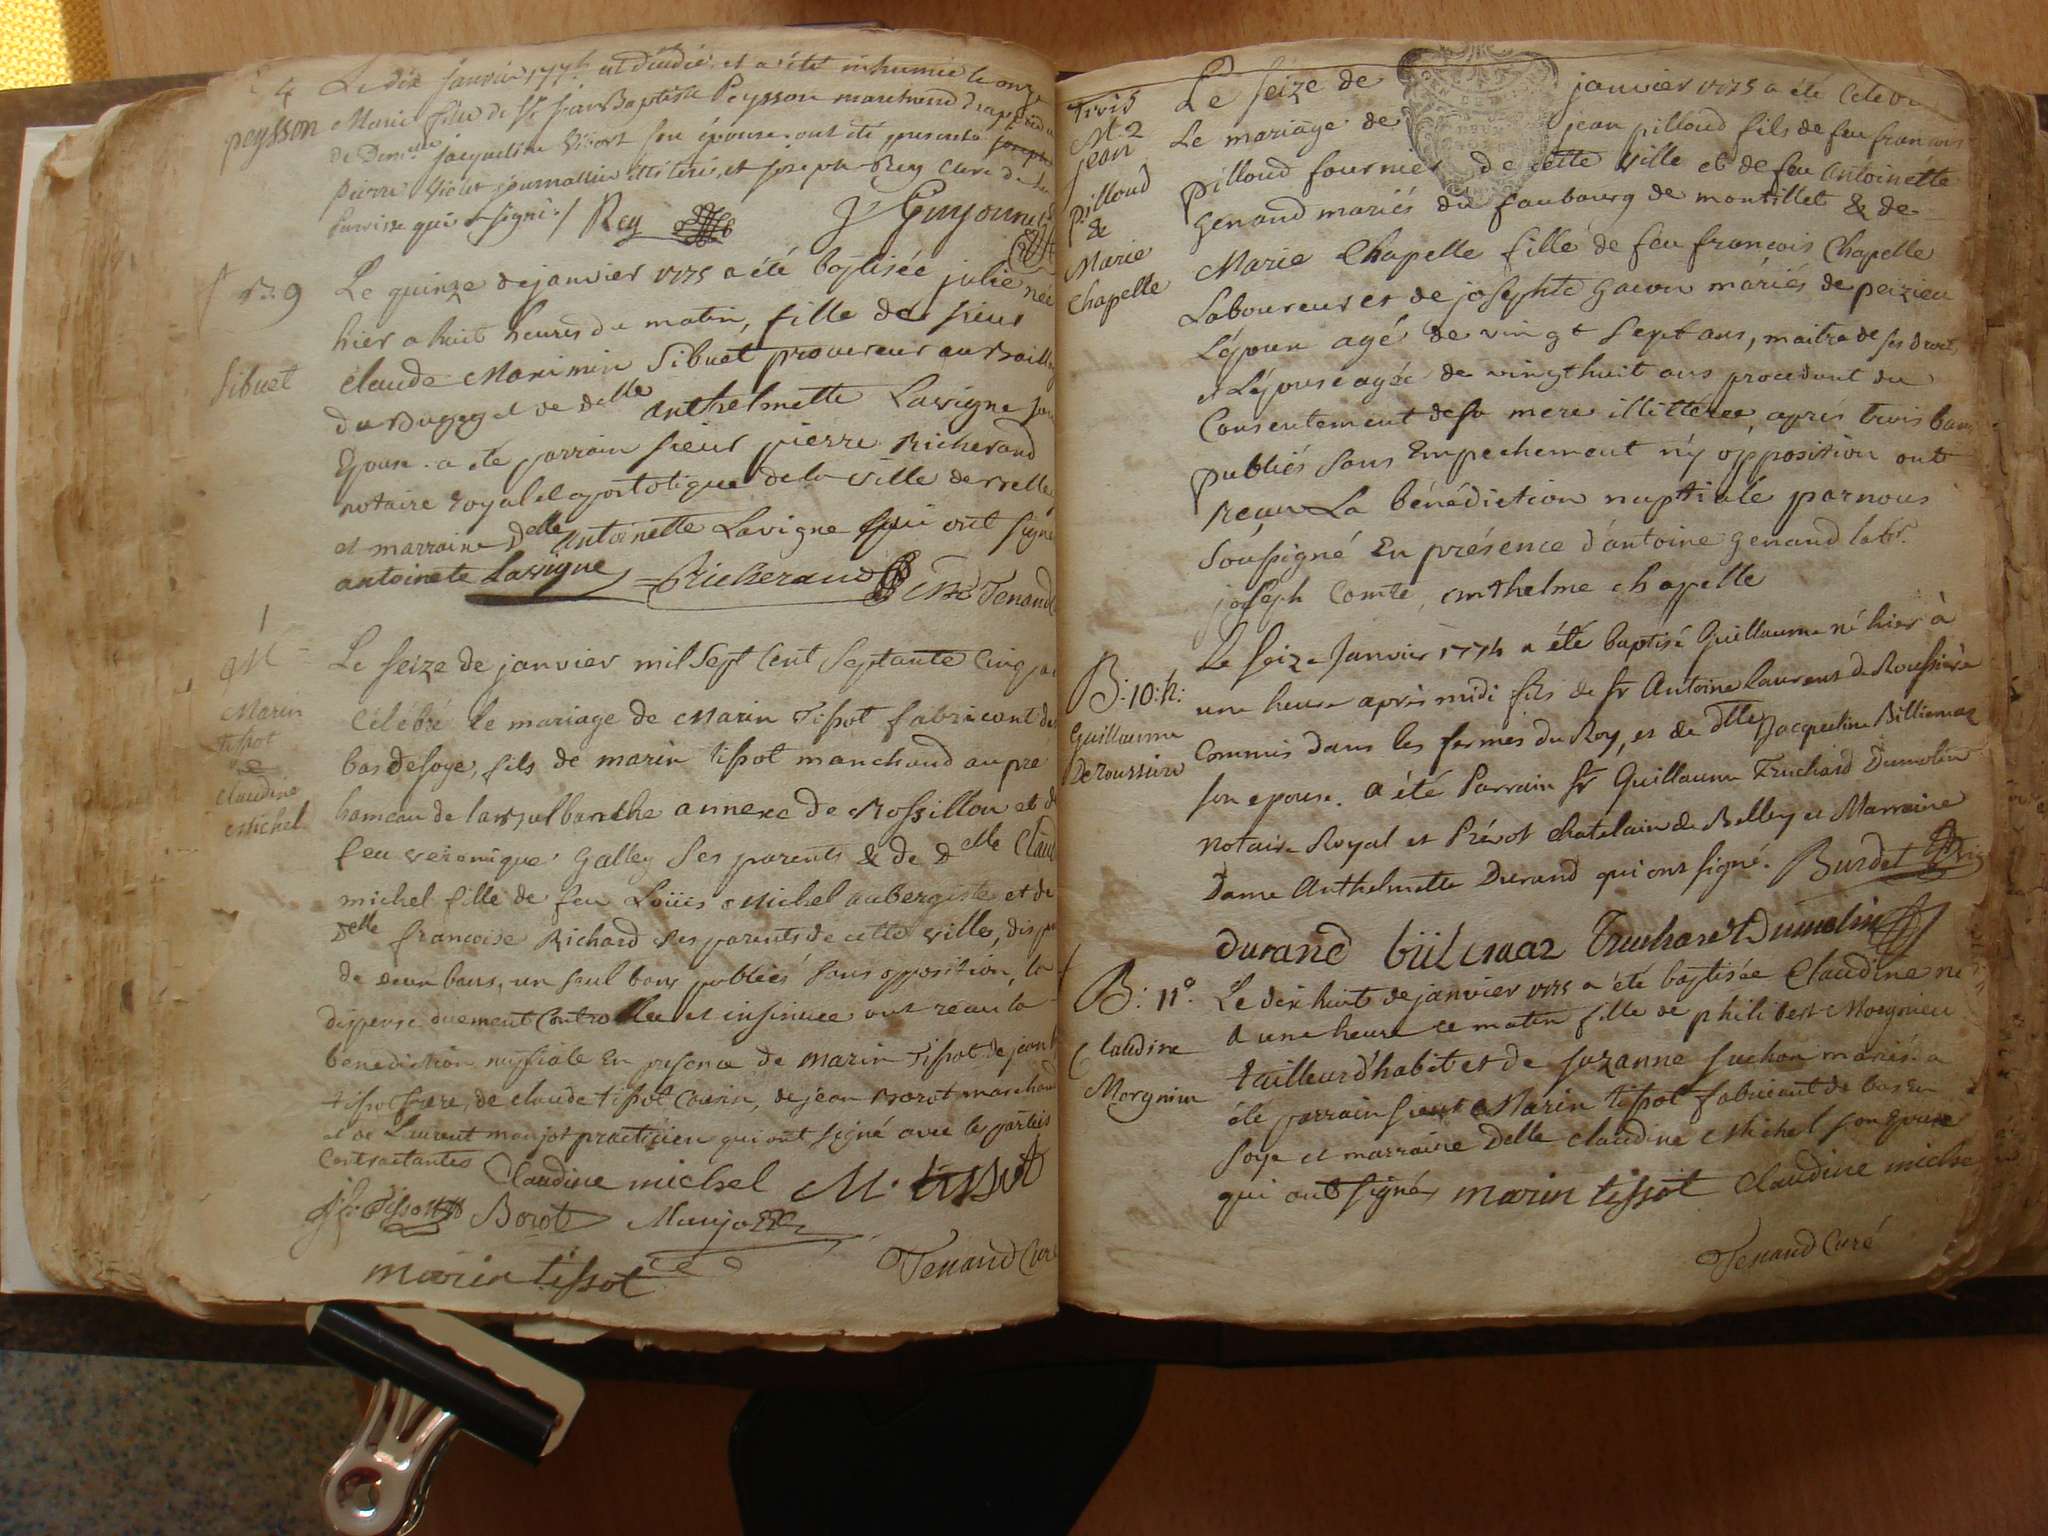 4 Le dix Janvier 1775 est décédée et a été inhumée le onze
peysson Marie fille de Sr Jean Baptiste Peysson marchand drapier
de Demlle jacqueline son épouse ont été présents
pierre journallier illiteré, et joseph Rey Clerc de
Parroisse qui a signé ./ Rey J Guyonnet
Le quinze de janvier 1775 a été baptisée julie née
9
hier a huit heures du matin, fille de sieur
Sibuet
claude Maximin Sibuet procureur au Bailla
du Bugey et de delle anthelmette Lavigne son
Epouse . a été parrain sieur pierre Richerand
notaire royal et apostolique de la ville de Belley
et marraine Delle antoinette Lavigne qui ont signé
antoinete Lavigne Richerand Tenand
1
M
Le seize de janvier mil Sept Cent Septante Cinq
Marin
tissot
&
claudine
Michel
Célébré le mariage de Marin Tissot fabricant de
bas de soye, fils de marin tissot marchand au pre
hameau de annexe de Rossillon et de
feu veronique Galley ses parents & de Delle Claud
michel fille de feu Loüis Michel aubergiste et de
Delle francoise Richard ses parents de cette ville, dispen
de deux bans, un seul bans publiés sans opposition, la
dispense duement Controllee et insinuee ont recau la
benediction nuptiale En presence de marin Tissot de
tissot frere, de claude tissot Cousin, de jean Borot marchand
et de Laurent manjot practicien qui ont signé avec les parties
Contractantes Claudine michel M. tissot
Tissot Borot Manjot
marin tissot Tenand Curé
trois
M. 2
jean
pilloud
&
Marie
Chapelle
Le seize de janvier 1775 a été Celebré
Le mariage de jean pilloud fils de feu francois
pilloud fournier de cette ville et de feu Antoinette
Genand mariés du faubourg de montillet & de
Marie Chapelle fille de feu francois Chapelle
Laboureur et de josephte mariés de peizieu
L'époux agé de vingt Sept ans, maitre de ses droits
et L'épouse agée de vingthuit ans procedant du
Consentement de sa mere illitéree, après trois bans
publiés sans Empechement ny opposition ont
reçeu La bénédiction nuptiale par nous
Soussigné En présence d'antoine genand labr.
joseph Comte, anthelme chapelle
B: 10:
Guillaume
De roussiere
Le seize Janvier 1774 a été baptisé Guillaume né hier à
une heure après midi fils de Sr Antoine laurent de Roussiere
Commis dans les fermes du Roy, et de Dlle Jacqueline Billiemaz
son epouse. a été Parrain Sr Guillaume Truchard Dumolin
Notaire Royal et Prévot chatelain de Belley et Marraine
Dame Anthelmette Durand qui ont signé. Burdet
durand biiliemaz Truchard Dumolin
B: 11º
Claudine
Morgnieu
Le dix huit de janvier 1775 a été baptisée Claudine née
a une heure ce matin fille de philibert Morgnieu
tailleur d'habit et de suzanne suchon mariés . a
été parrain sieur Marin tissot fabricant de bas en
soye et marraine Delle claudine Michel son Epouse
qui ont signés marin tissot Claudine michel
Tenand Curé